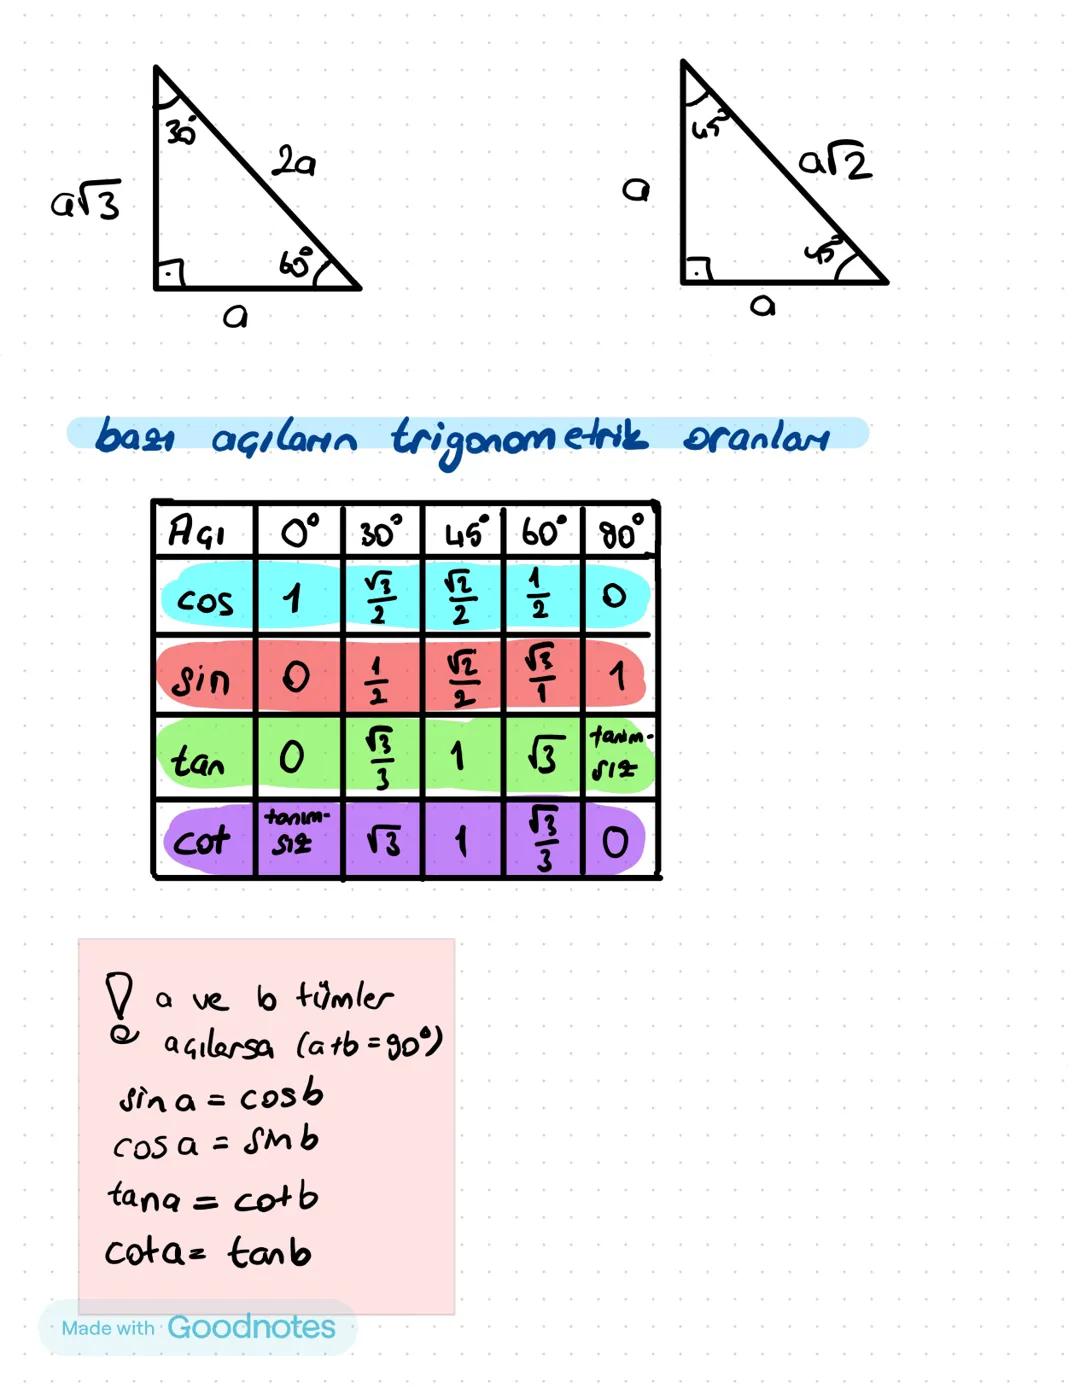 30°
2a
a√3
60°
a
45°
a√2
a
45°
a
bazı açıların trigonometrik oranları
Açı 0° 30° 45° 60° 90°
cos 1 √3/2 √2/2 1/2 0
sin 0 1/2 √2/2 √3/1 1
tan 0 √3/3 1 √3 tanım-sız
cot tanım-sız √3 1 √3/3 0
! a ve b tümler
açılarsa (a+b=90°)
sin a = cos b
cos a = sin b
tan a = cot b
cot a = tan b
Made with Goodnotes